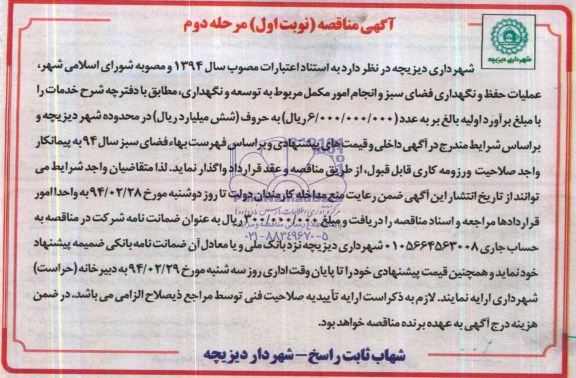 آگهی مناقصه (نوبت اول) مرحله دوم
شهرداری دیزیچه
شهرداری دیزیچه در نظر دارد به استناد اعتبارات مصوب سال ۱۳۹۴ و مصوبه شورای اسلامی شهر،
عملیات حفظ و نگهداری فضای سبز و انجام امور مکمل مربوط به توسعه و نگهداری، مطابق با دفترچه شرح خدمات را
با مبلغ برآورد اولیه بالغ بر به عدد (۶/۰۰۰/۰۰۰/۰۰۰ ریال) به حروف (شش میلیارد ریال) در محدوده شهر دیزیچه و
براساس شرایط مندرج در آگهی داخلی و قیمت های پیشنهادی و براساس فهرست بهاء فضای سبز سال ۹۴ به پیمانکار
واجد صلاحیت ورزومه کاری قابل قبول، از طریق مناقصه و عقد قرارداد واگذار نماید. لذا متقاضیان واجد شرایط می
توانند از تاریخ انتشار این آگهی ضمن رعایت منع مداخله کارمندان دولت تا روز دوشنبه مورخ ۹۴/۰۲/۲۸ به واحد امور
قراردادها مراجعه و اسناد مناقصه را دریافت و مبلغ ۳۰۰/۰۰۰/۰۰۰ ریال به عنوان ضمانت نامه شرکت در مناقصه به
حساب جاری ۰۱۰۵۶۶۴۵۶۳۰۰۸ شهرداری دیزیچه نزد بانک ملی و یا معادل آن ضمانت نامه بانکی ضمیمه پیشنهاد
خود نماید و همچنین قیمت پیشنهادی خود را تا پایان وقت اداری روز سه شنبه مورخ ۹۴/۰۲/۲۹ به دبیرخانه (حراست)
شهرداری ارایه نمایند. لازم به ذکر است ارایه تأییدیه صلاحیت فنی توسط مراجع ذیصلاح الزامی می باشد. در ضمن
هزینه درج آگهی به عهده برنده مناقصه خواهد بود.
شهاب ثابت راسخ - شهردار دیزیچه
۰۲۱-۸۸۳۴۹۶۷۰-۵